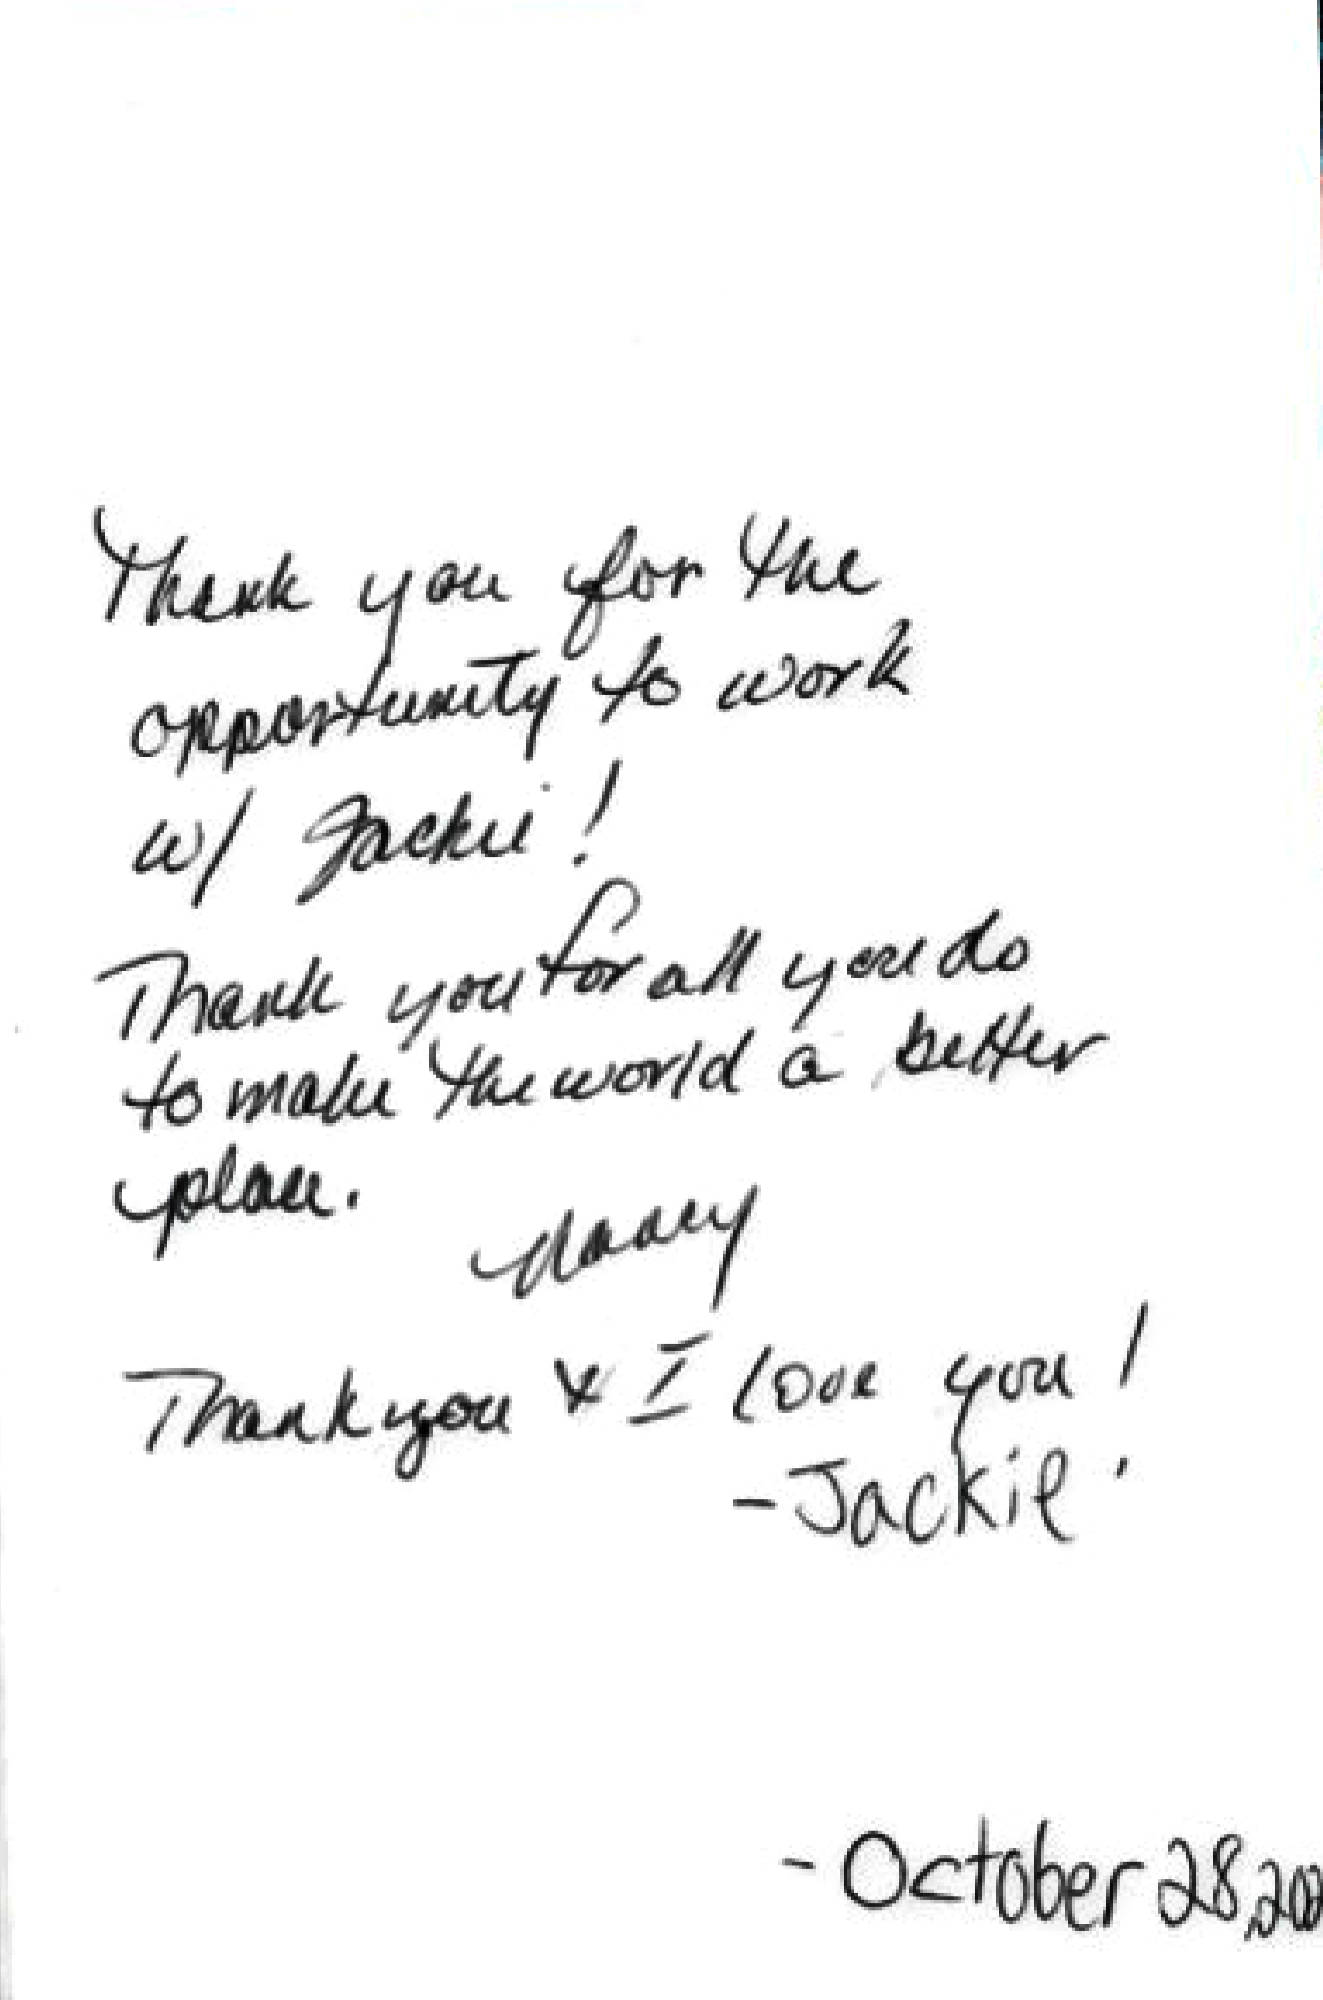 Thank you for the
opportunity to work
w/ Jackie!
Thank you for all you do
to make the world a better
place.
Nancy
Thank you & I love you!
-Jackie
- October 28, 202